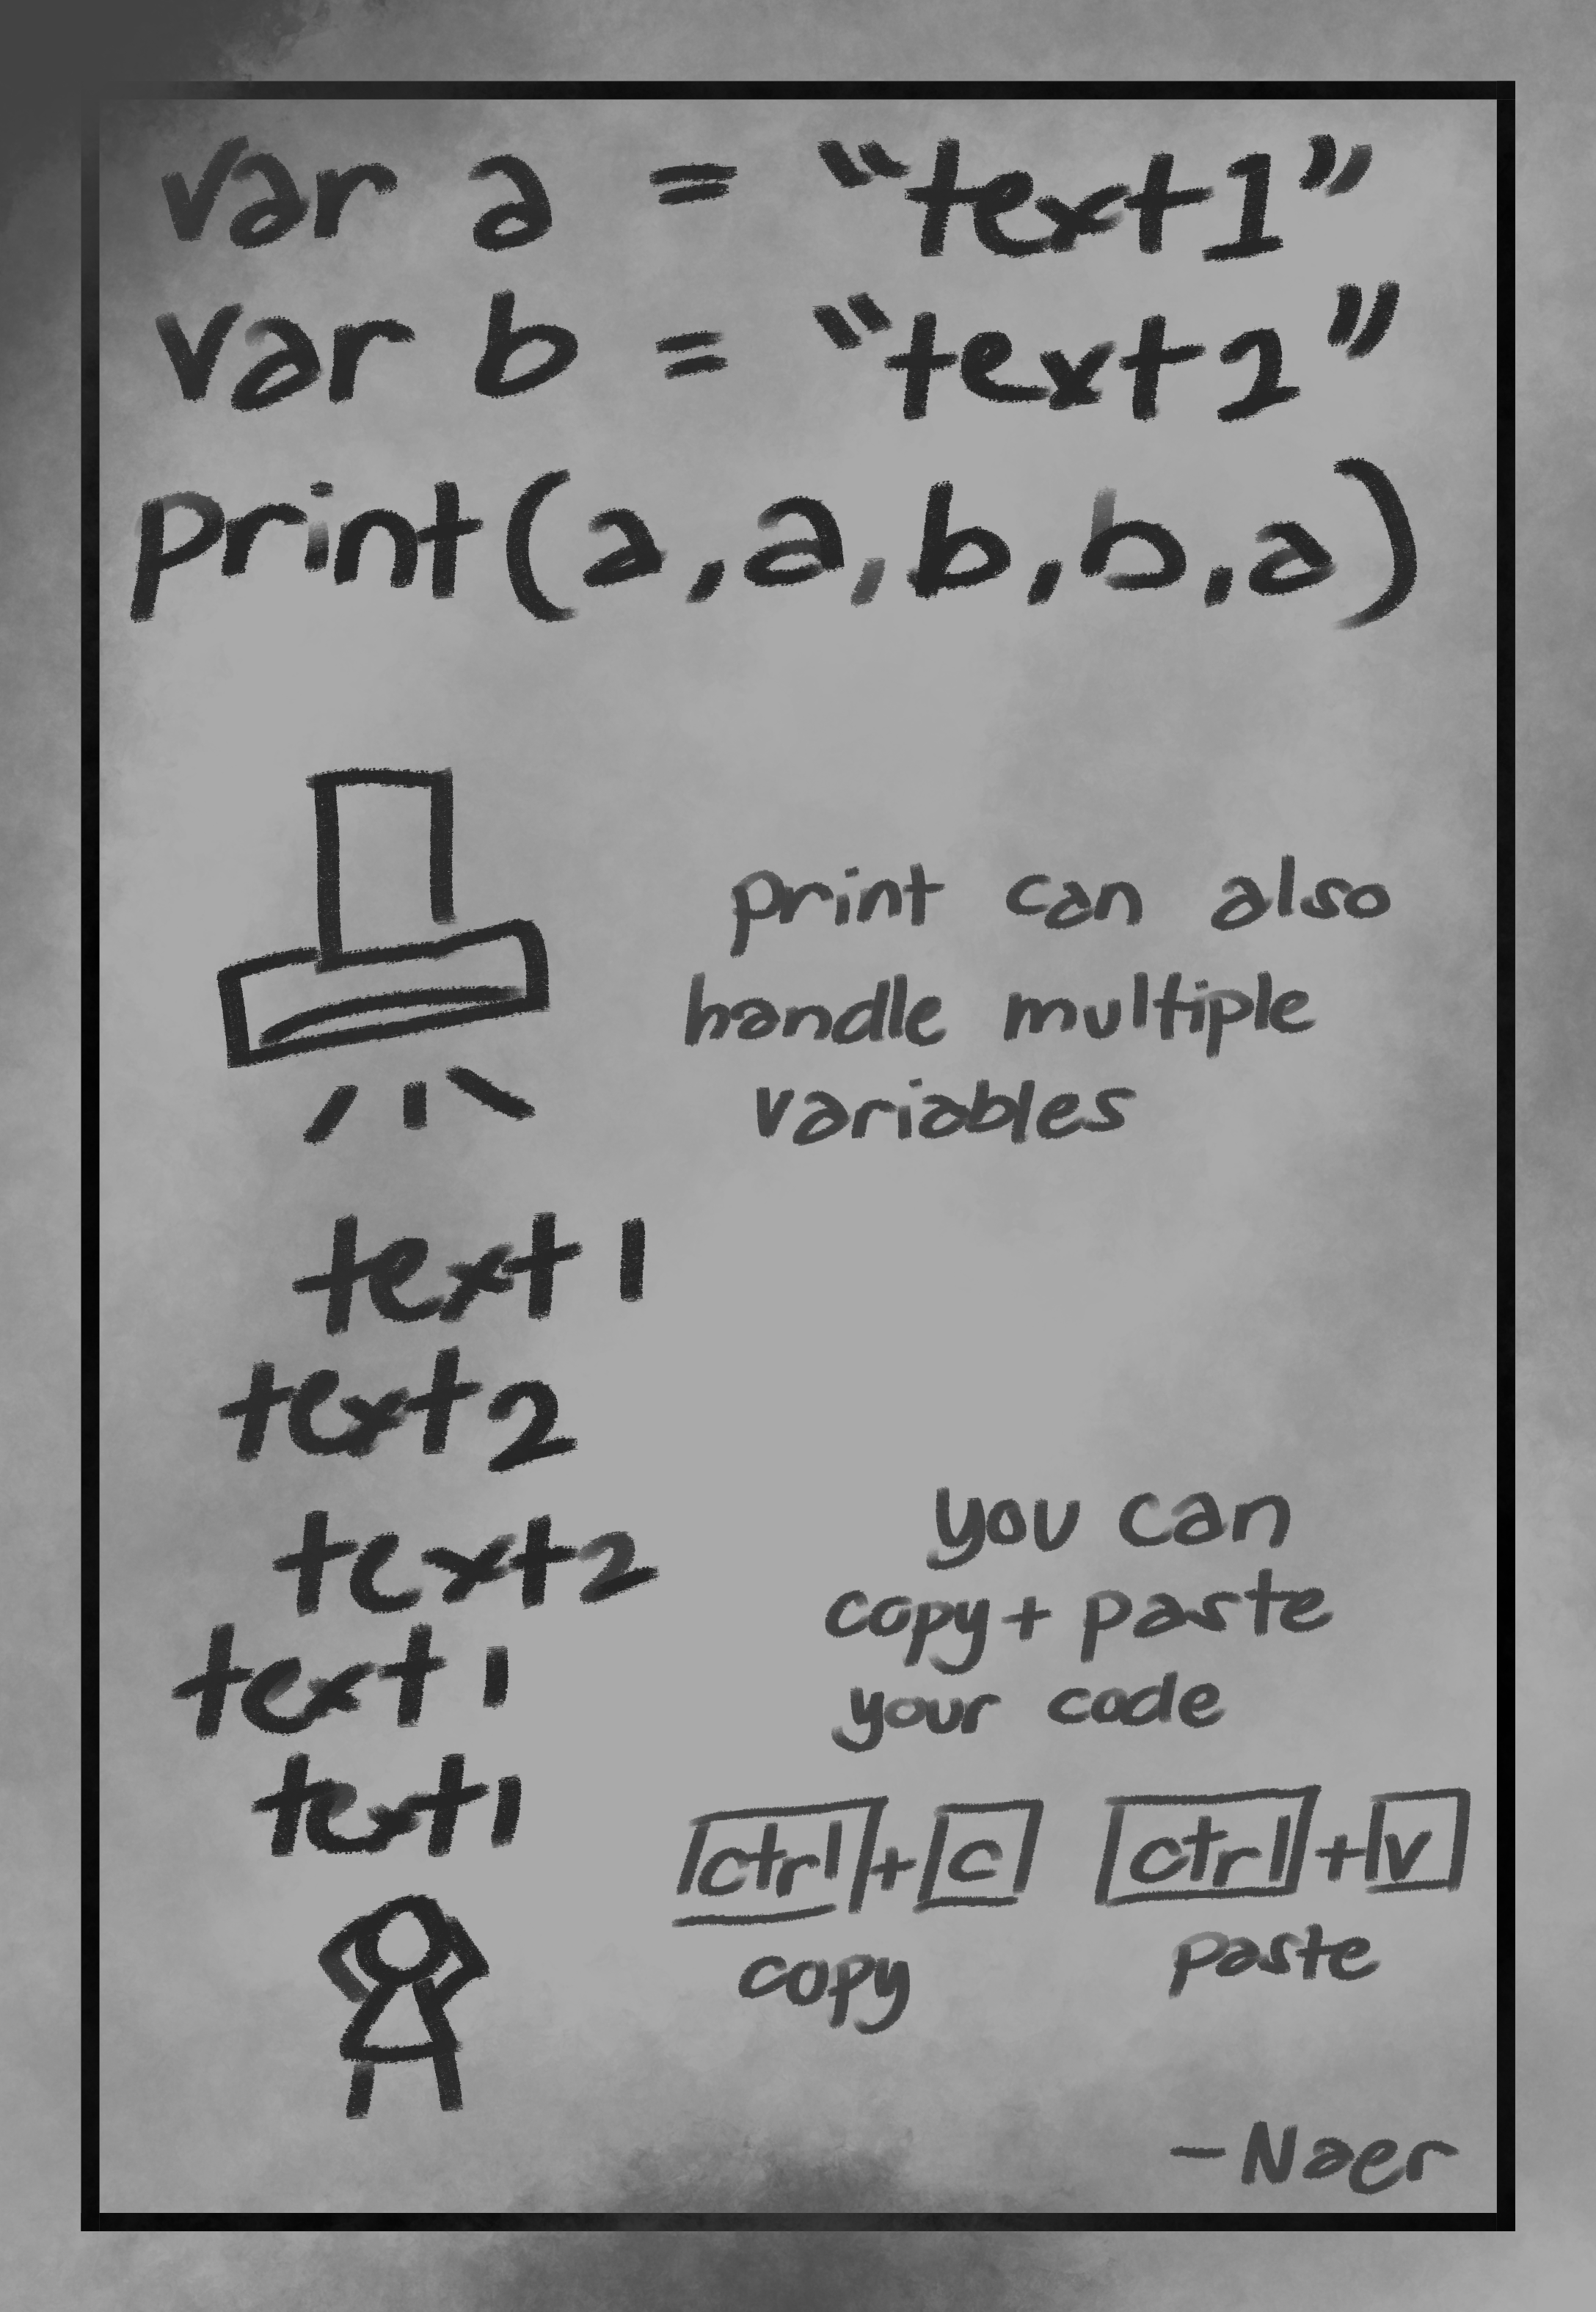 var a = “text1”
var b = “text2”
print(a,a,b,b,a)
print can also
handle multiple
variables
text1
text2
text2
text1
text1
you can
copy+paste
your code
ctrl+c ctrl+v
copy paste
-Naer